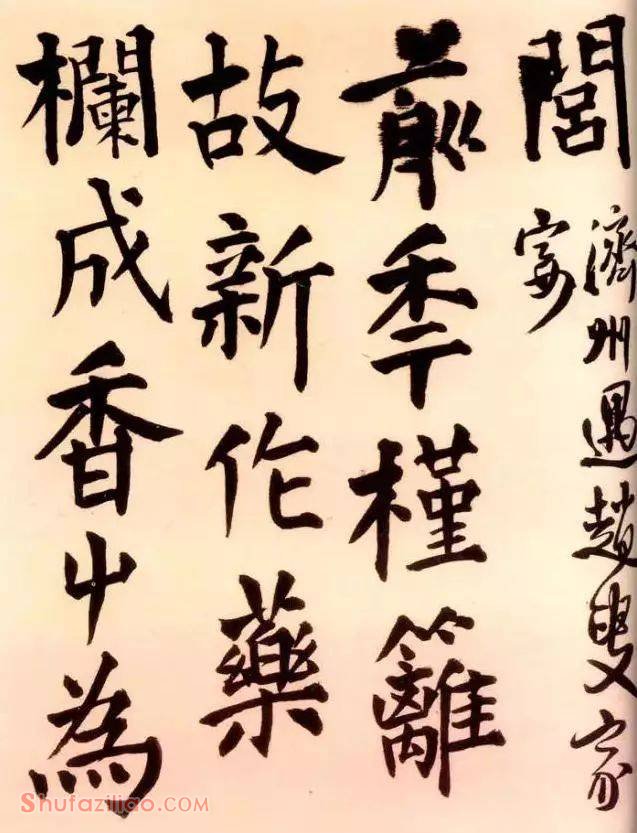 閭
濟州過趙叟家
宴
前秊槿籬
故新作藥
欄成香屮為
Shufaziliao.COM